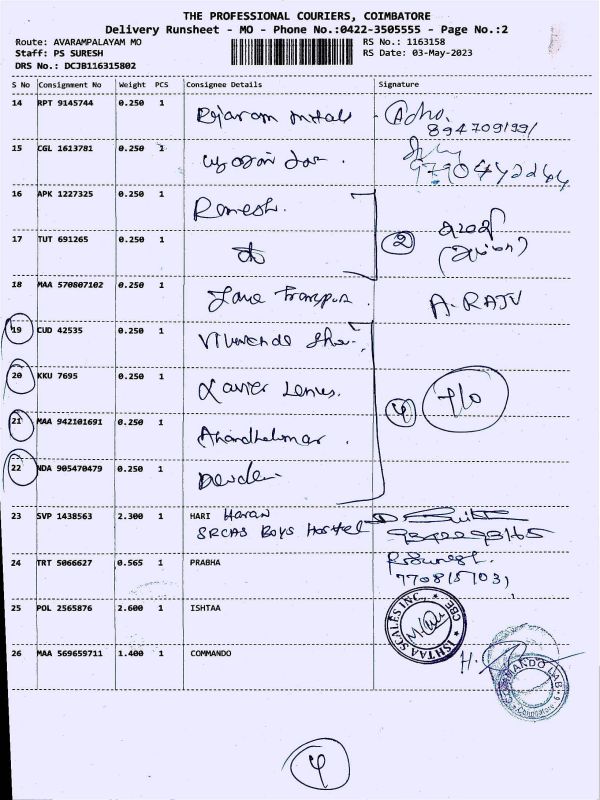 THE PROFESSIONAL COURIERS, COIMBATORE
Delivery Runsheet - MO - Phone No.:0422-3505555 - Page No.:2
Route: AVARAMPALAYAM MO RS No.: 1163158
Staff: PS SURESH RS Date: 03-May-2023
DRS No.: DCJB116315802
S No Consignment No Weight PCS Consignee Details Signature
14 RPT 9145744 0.250 1 Rajaram metals
15 CGL 1613781 0.250 1
9790442244
16 APK 1227325 0.250 1 Ramesh.
17 TUT 691265 0.250 1 2
18 MAA 570807102 0.250 1 A. RAJU
19 CUD 42535 0.250 1
20 KKU 7695 0.250 1 Xavier
21 MAA 942101691 0.250 1 Anandhakumar 4
22 NDA 905470479 0.250 1
23 SVP 1438563 2.300 1 HARI Haran
SRCAS Boys Hostel 9342293165
24 TRT 5066627 0.565 1 PRABHA
7708157031
25 POL 2565876 2.600 1 ISHTAA
ISHTAA SCALES INC. CBE
26 MAA 569659711 1.400 1 COMMANDO
COMMANDO LAB
Coimbatore
4